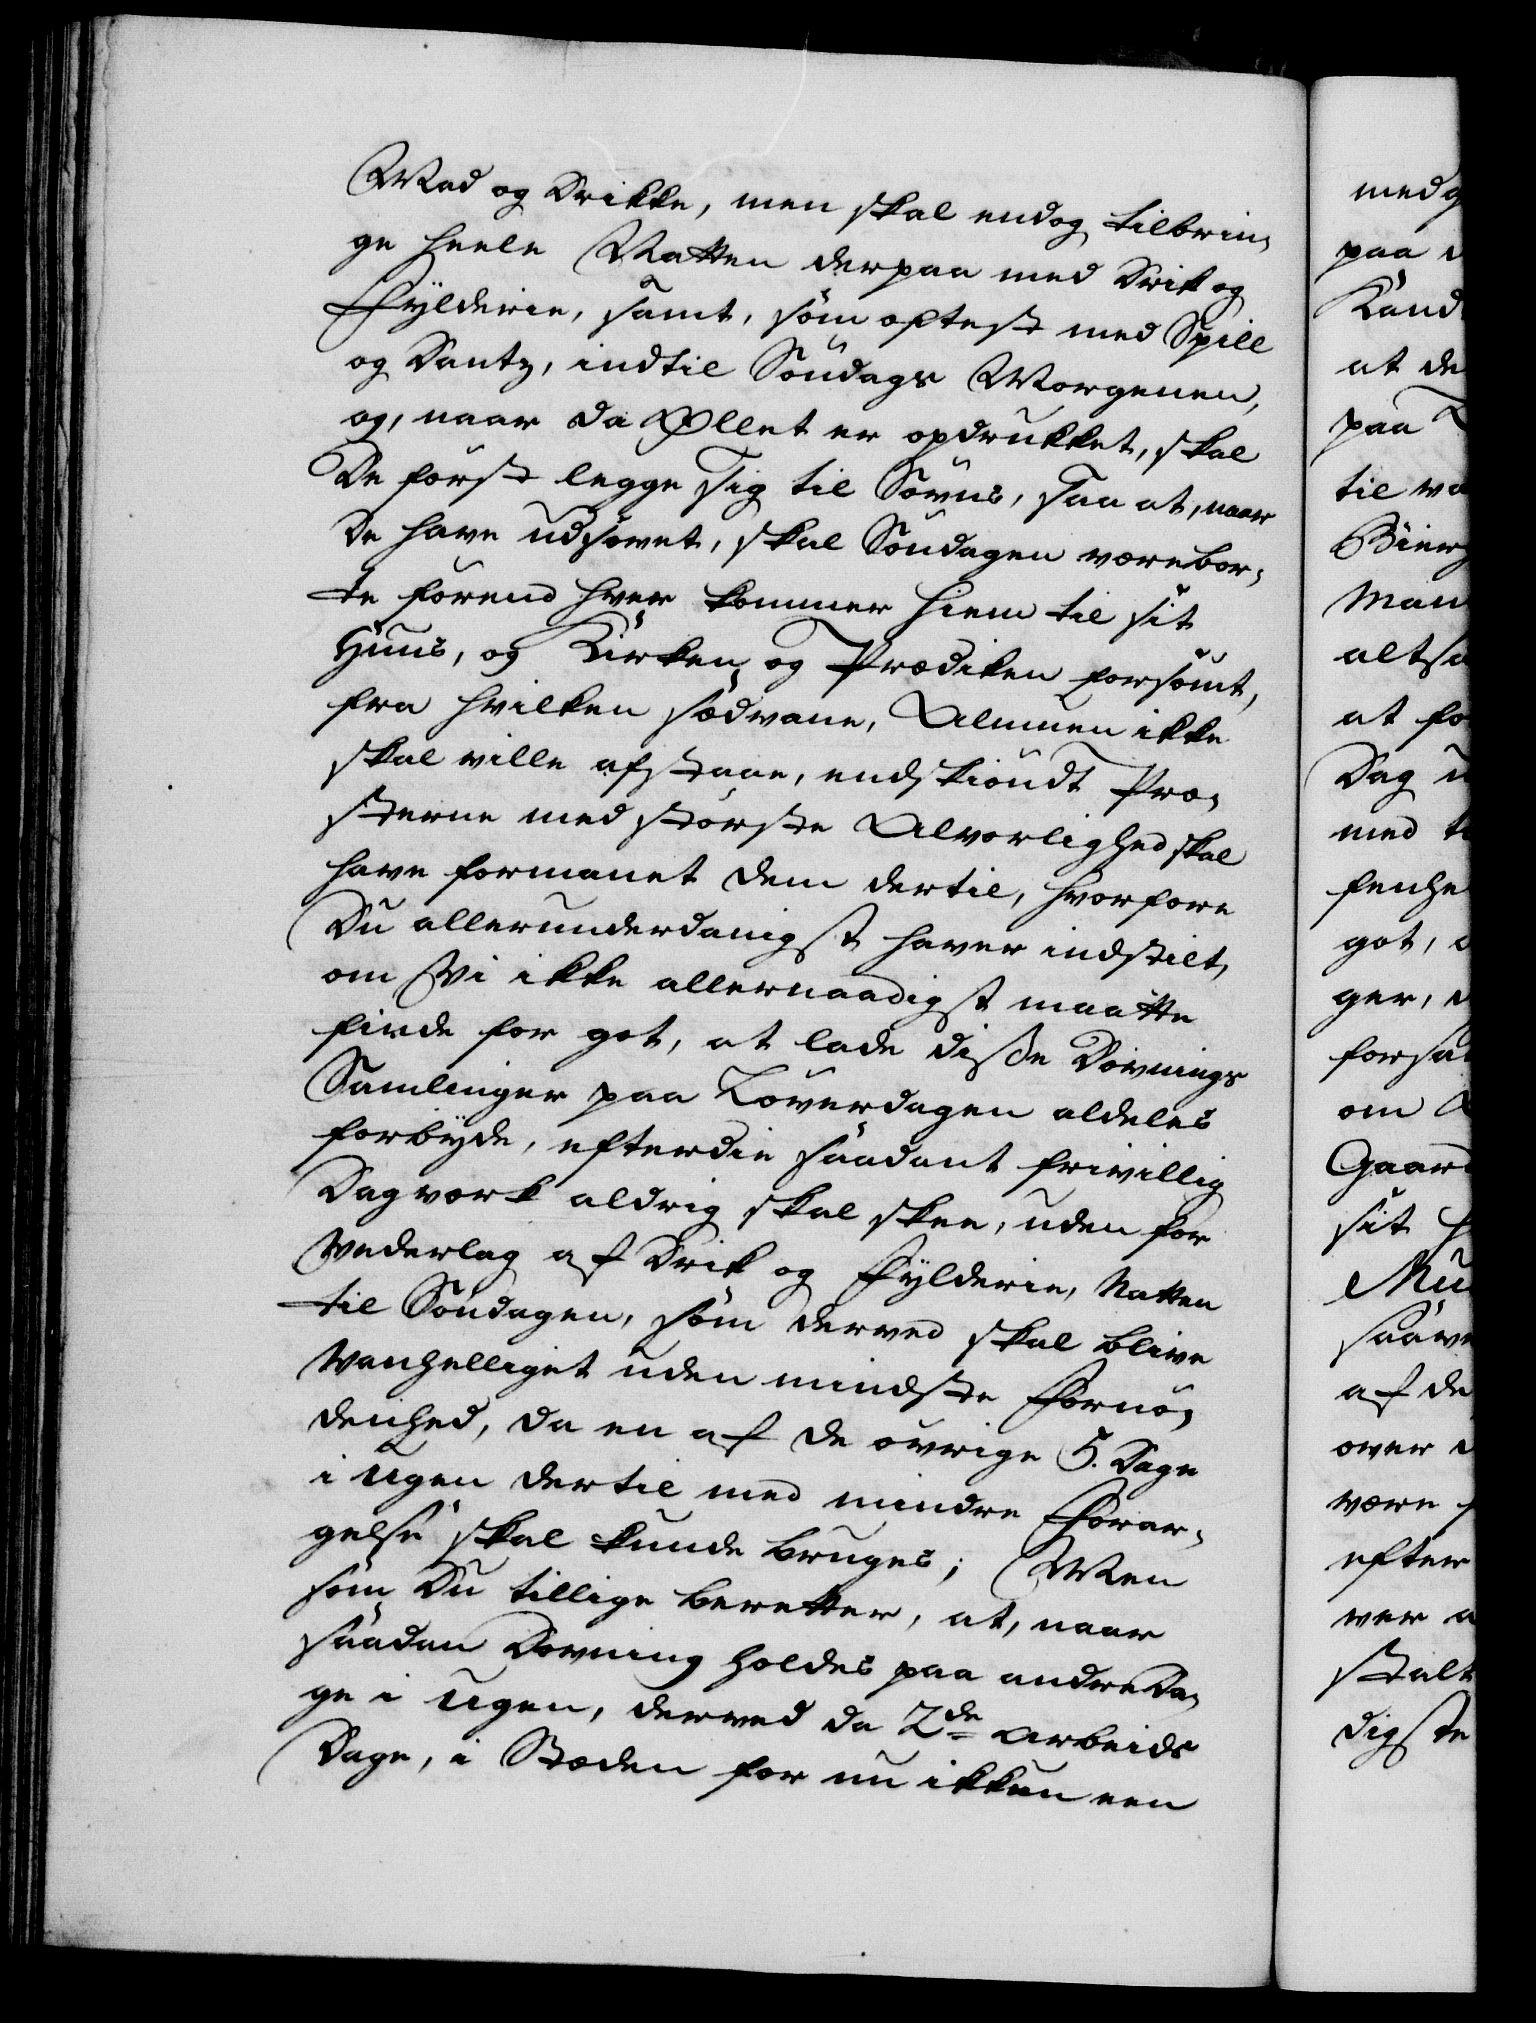 Mad og Drikke, men skal endog tilbrin-
ge heele Natten derpaa med Drik og
Fylderie, samt, som oftest med Spill
og Dantz, indtil Søndags Morgenen,
og, naar da Øllet er opdrukket, skal
De først legge sig til Søvns, saa at, naar
De have udsovet, skal Søndagen være bor-
te førend hver kommer hiem til sit
Huus, og Kirken og Prædiken forsømt,
fra hvilken sædvane, Almuen ikke
skal ville afstaae, endskiøndt Præ-
sterne med største Alvorlighed skal
have formanet dem dertil, hvorfore
Du allerunderdanigst haver indstilt,
om Vi ikke allernaadigst maatte
finde for got, at lade disse Dovnings
Samlinger paa Løverdagen aldeles
forbyde, efterdie saadant frivillig
Dagværk aldrig skal skee, uden for
Vederlag af Drik og Fylderie, Natten
til Søndagen, som derved skal blive
Vanhelliget uden mindste Fornø-
denhed, da en af de øvrige 5. Dage
i Ugen dertil med mindre Forar-
gelse skal kunde bruges; Men
som Du tillige beretter, at, naar
saadan Dovning holdes paa andre Da-
ge i Ugen, derved da 2de Arbeids
Dage, i Stæden for nu ikkun een
med
paa
Kand
at de
paa
til
Man
at
Dag
med
got,
ger,
om
Gaard
sit
af de
over
være
efter